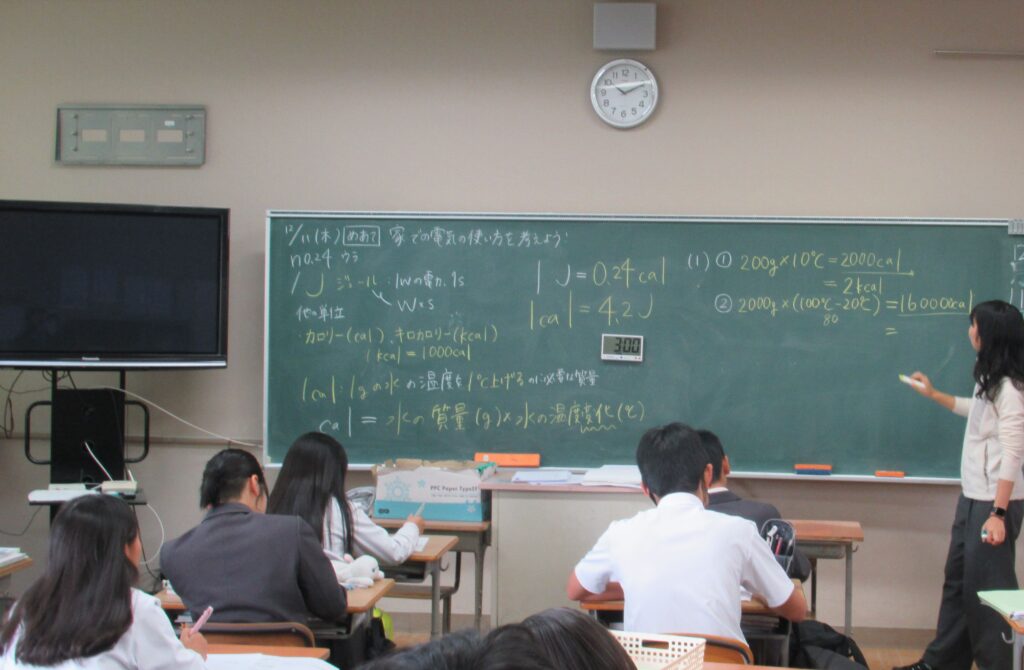 12/11(木) めあて 家での電気の使い方を考えよう!
no.24 ウラ
1J ジュール : 1Wの電力. 1s
W×s
他の単位
・カロリー(cal)、キロカロリー(kcal)
1kcal = 1000cal
1cal : 1gの水の温度を1℃上げるのに必要な質量
cal = 水の質量(g)×水の温度変化(℃)
1J = 0.24cal
1cal = 4.2J
3:00
(1) ① 200g×10℃ = 2000cal
= 2kcal
② 2000g×(100℃-20℃) = 16000cal
80
=
PPC Paper Type
Panasonic
12 1 2 3 4 5 6 7 8 9 10 11